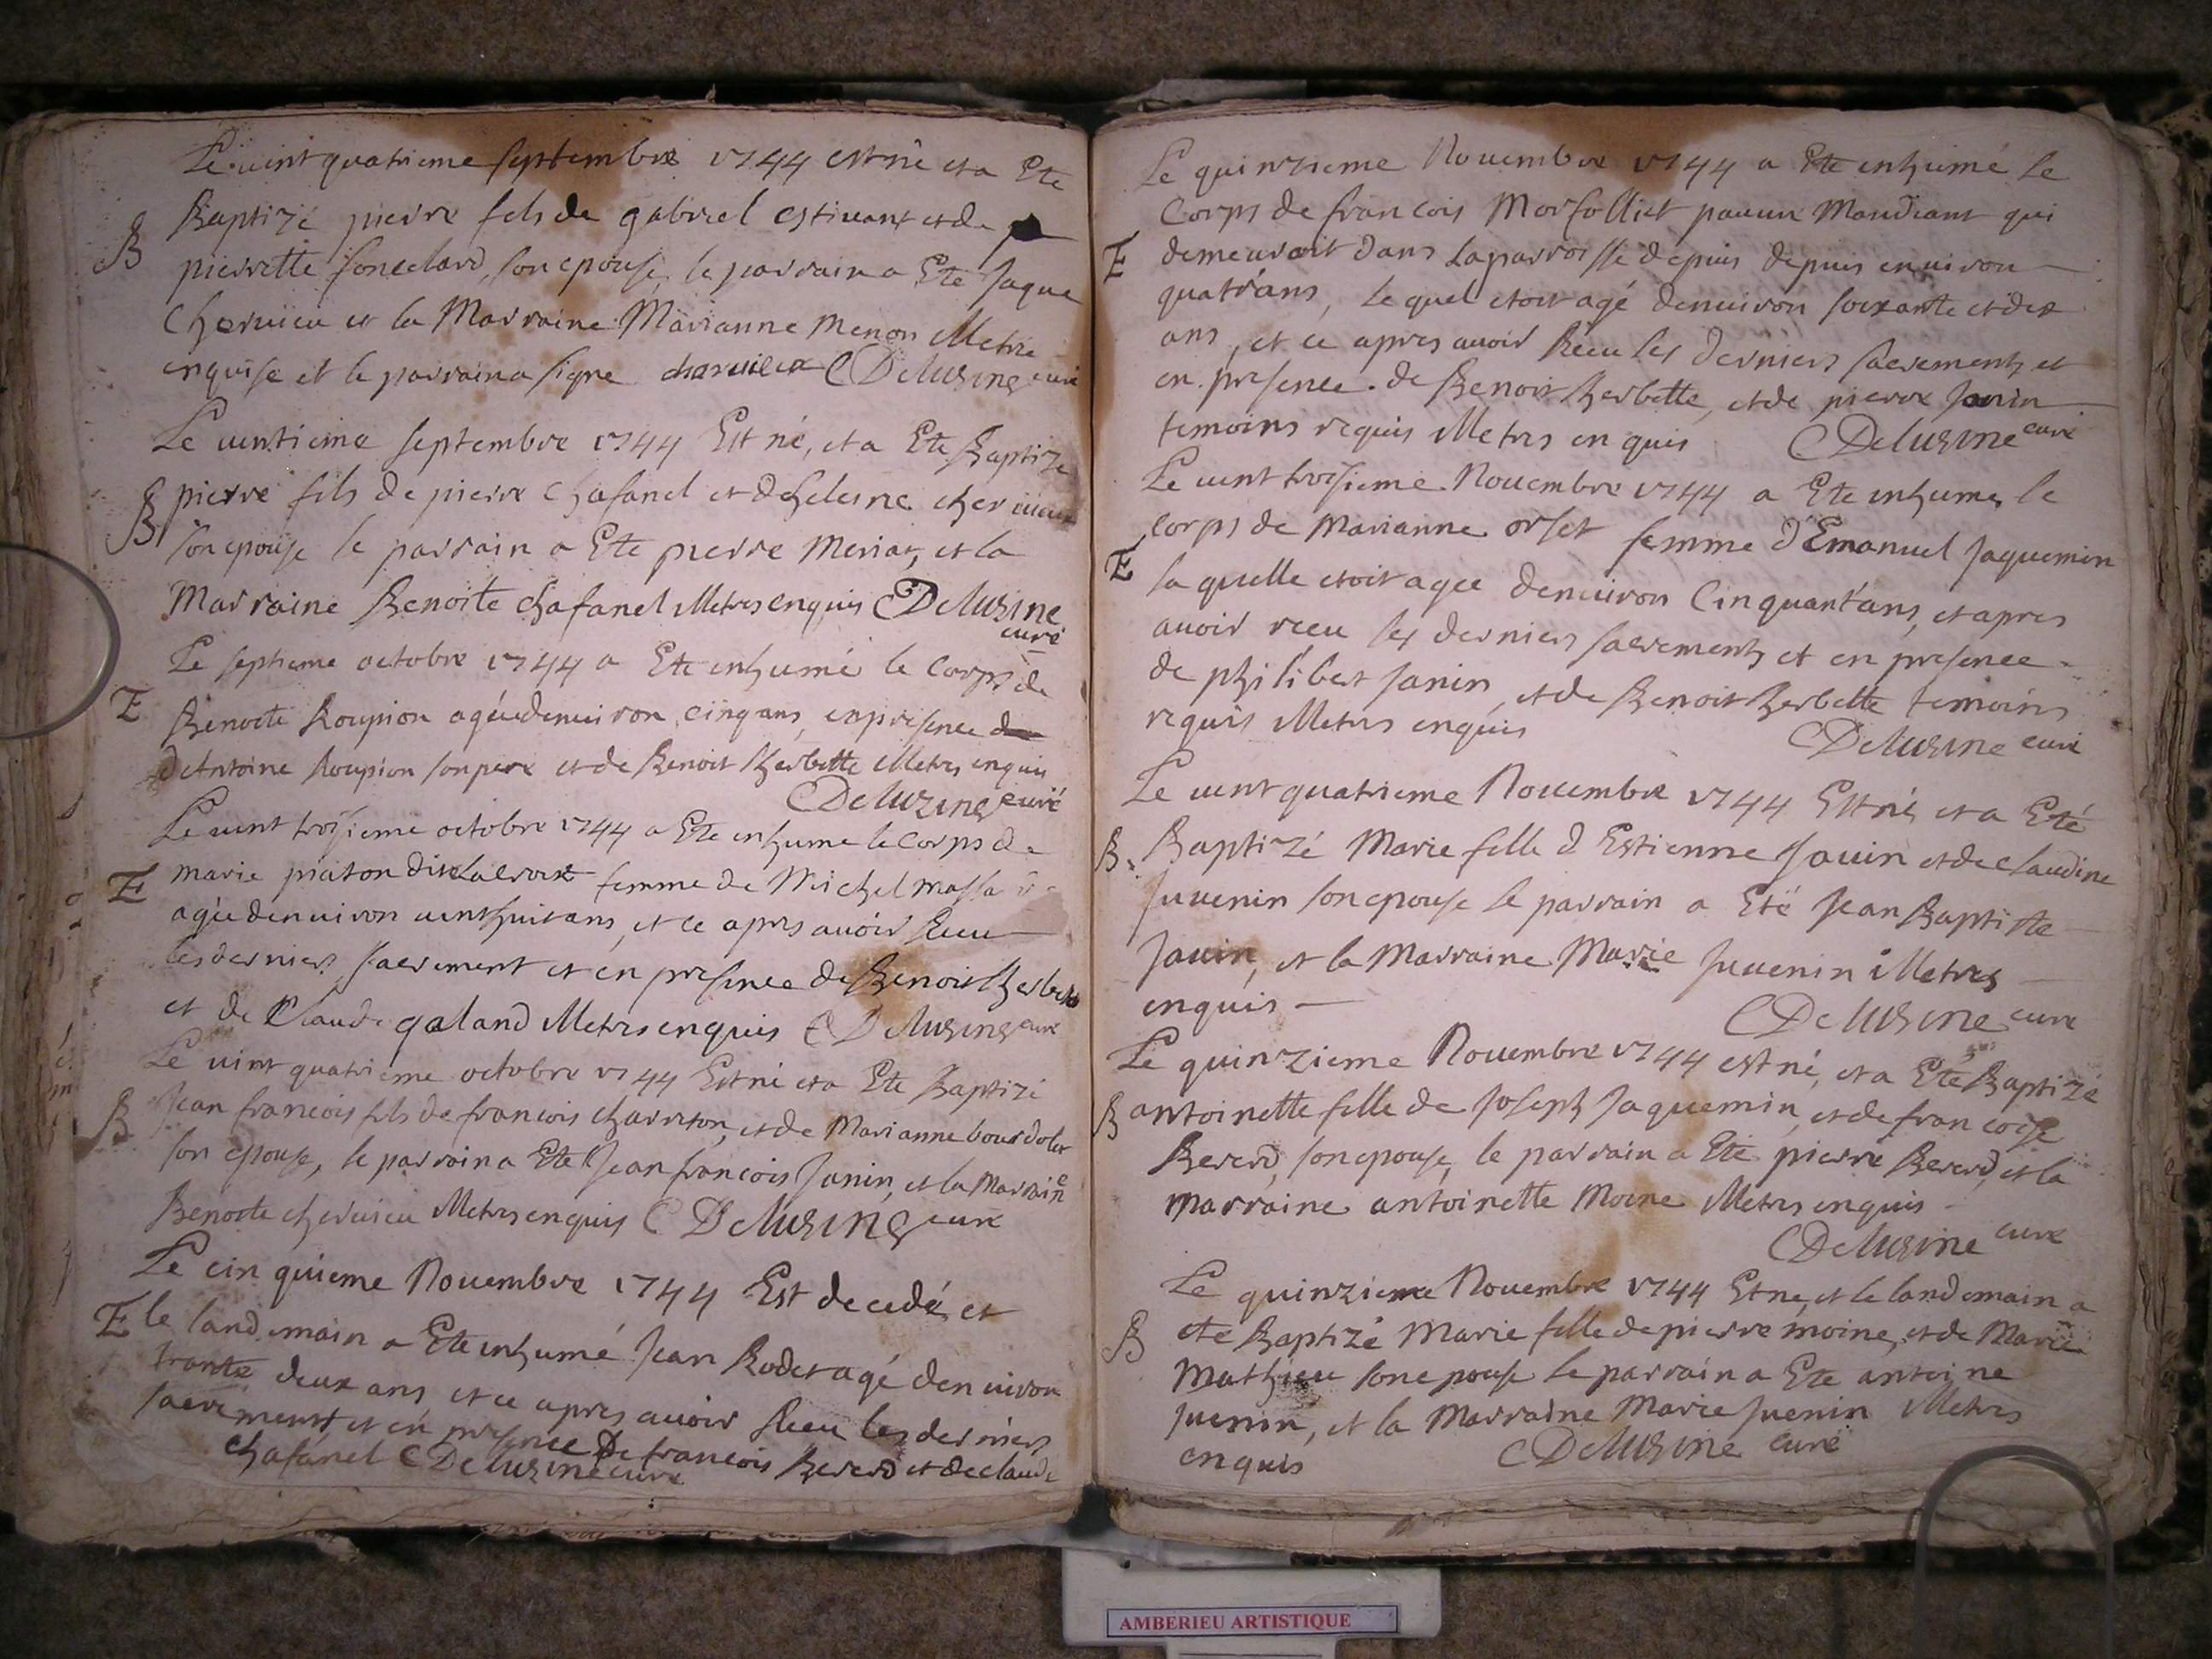 Le vint quatrieme septembre 1744 est né et a Ete
B Baptizé pierre fils de gabriel estivant et de
pierrette fonclard, son epouse, le parrain a Ete Jaque
Chervieu et la Marraine Marianne Menon Metre
enquise et le parrain a signe charvieux Delusine curé
Le ventieme septembre 1744 Est né, et a Ete Baptize
B pierre fils de pierre Chafanel et de helesne chervieux
son epouse le parrain a Ete pierre Meriat, et la
Marraine Benoite Chafanel Metres enquis Delusine
curé
Le septieme octobre 1744 a Ete enhumé le Corps de
E Benoite Roupion agée denuiron cinq ans, en presence
d'Antoine Roupion son pere et de Benoit herbette Metres enquis
Delusine curé
Le vent troisieme octobre 1744 a Ete enhume le Corps de
E marie piaton dit Lacroix femme de Michel massa
agée denuiron vent huit ans, et ce apres auoir Receu
les derniers sacrement et en presence de Benoit herbette
et de Claude galand Metres enquis Delusine curé
Le vint quatrieme octobre 1744 Est né et a Ete Baptizé
B Jean francois fils de francois charreton, et de Marianne bourdolet
son epouse, le parrain a Ete Jean francois Janin, et la Marraine
Benoite chervieu Metres enquis Delusine curé
Le cinquieme Nouembre 1744 Est decedé, et
E le landemain a Ete enhumé Jean Rodet agé denuiron
trante deux ans, et ce apres auoir Receu les derniers
sacrements et en presence De francois Bererd et de claude
chafanel Delusine curé
Le quinzieme Nouembre 1744 a Ete enhumé le
Corps de francois Morfolliet pauun Mandiant qui
E demeuroit dans La parroisse depuis depuis enuiron
quatr'ans, le quel etoit agé denuiron soixante et dix
ans, et ce apres auoir Receu les derniers sacrements et
en presence de Benoit herbette, et de pierre Janin
temoins requis Metres enquis Delusine curé
Le vent troisieme Nouembre 1744 a Ete enhume le
corps de Marianne orset femme d'Emanuel Jaquemin
E la quelle etoit agee denuiron Cinquant'ans, et apres
auoir receu les derniers sacrements et en presence
de philibert Janin, et de Benoit herbette temoins
requis Metres enquis
Delusine curé
Le vent quatrieme Nouembre 1744 Est né et a Eté
B. Baptizé Marie fille d'Estienne Jauin et de claudine
Juuenin son epouse le parrain a Eté Jean Baptiste
Jauin, et la Marraine Marie Juuenin Metres
enquis
Delusine curé
Le quinzieme Nouembre 1744 est né, et a Ete Baptizé
B antoinette fille de Joseph Jaquemin, et de francoise
Bererd, son epouse, le parrain a Eté pierre Bererd, et la
marraine antoinette Moine Metres enquis
Delusine curé
Le quinzieme Nouembre 1744 Et ne, et le landemain a
B eté Baptizé Marie fille de pierre moine, et de Marie
Mathieu son epouse le parrain a Ete antoine
Juenin, et la Marraine Marie Juenin Metres
enquis Delusine curé
AMBERIEU ARTISTIQUE